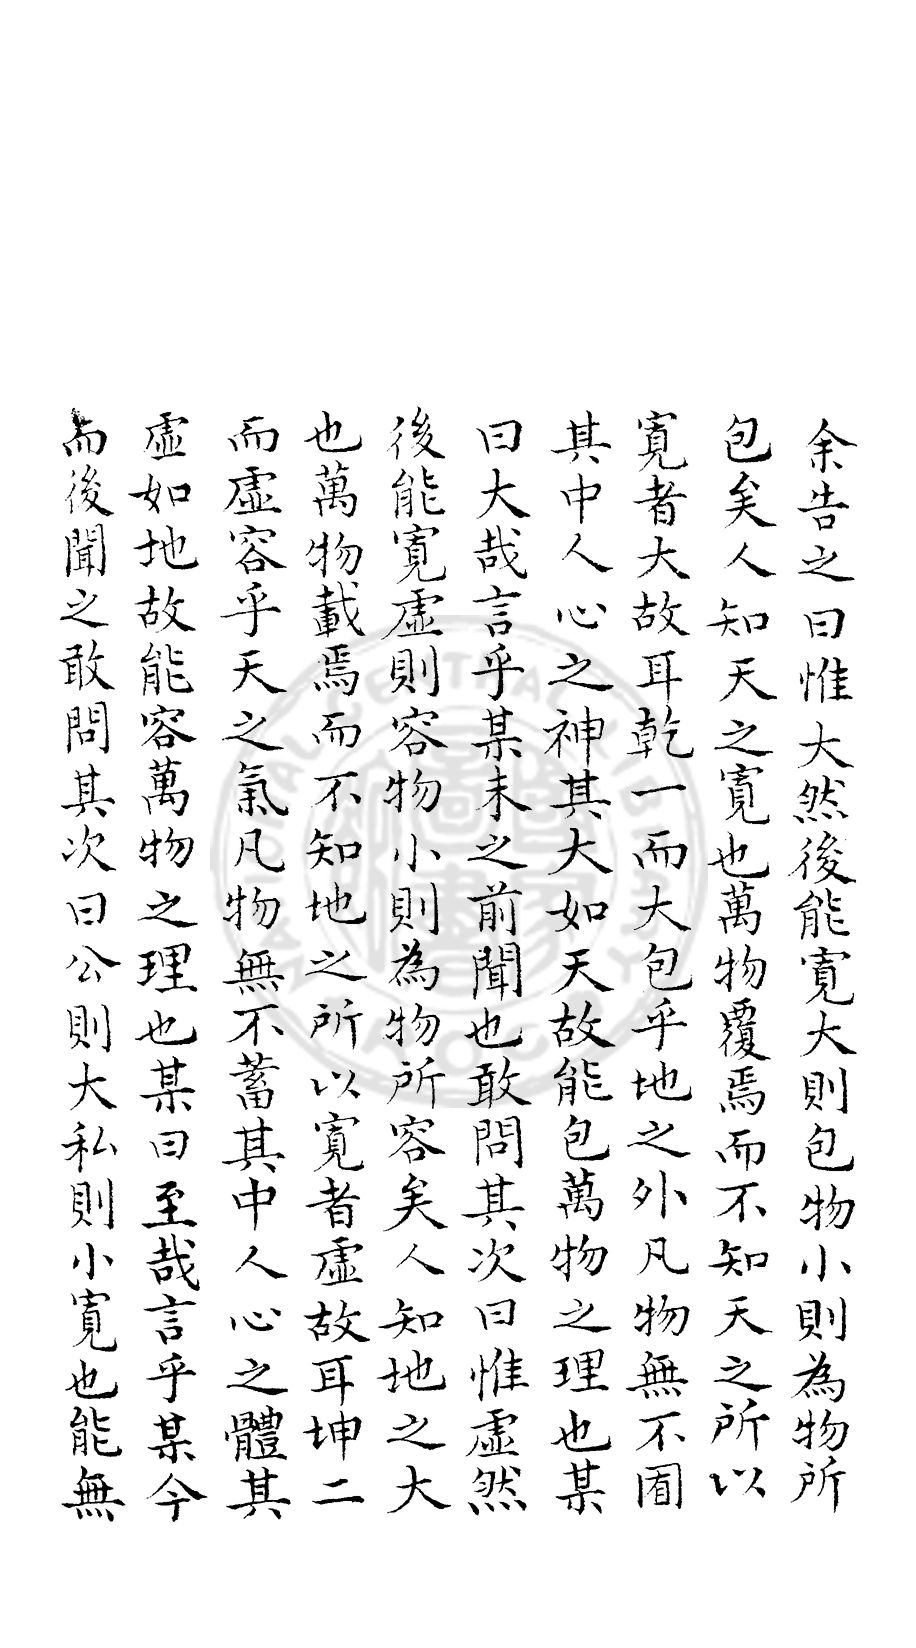 余告之曰惟大然後能寛大則包物小則為物所
包矣人知天之寛也萬物覆焉而不知天之所以
寛者大故耳乾一而大包乎地之外凡物無不囿
其中人心之神其大如天故能包萬物之理也某
曰大哉言乎某未之前聞也敢問其次曰惟虛然
後能寛虛則容物小則為物所容矣人知地之大
也萬物載焉而不知地之所以寛者虛故耳坤二
而虛容乎天之氣凡物無不蓄其中人心之體其
虛如地故能容萬物之理也某曰至哉言乎某今
而後聞之敢問其次曰公則大私則小寛也能無